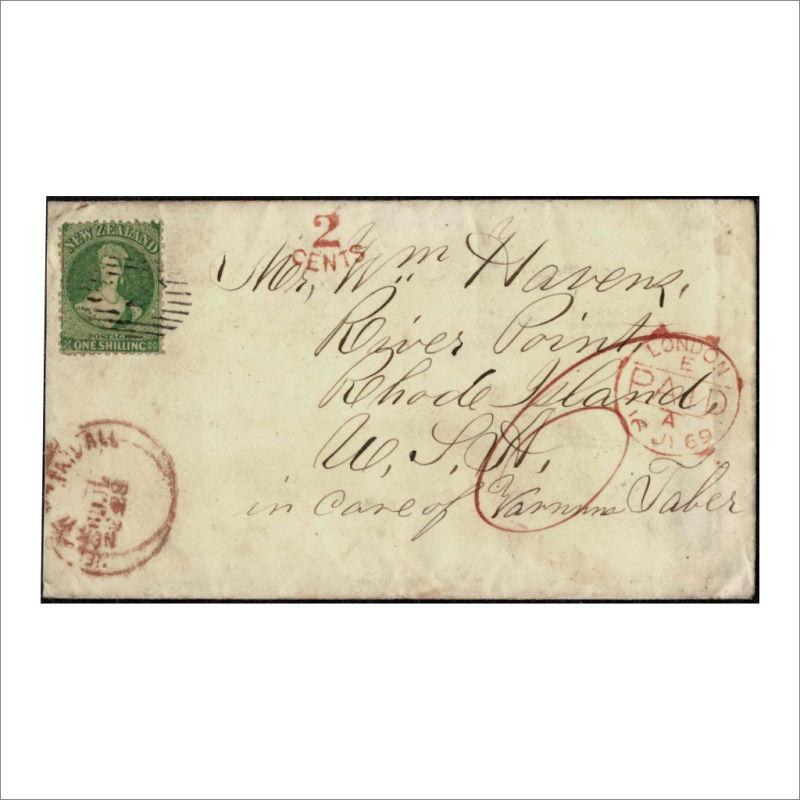 NEW ZEALAND
POSTAGE
ONE SHILLING
2
CENTS
Mr, Wm Havens,
River Point,
Rhode Island,
U. S. A.
in care of Varnum Taber
6
LONDON
E
PAID
A
69
PAID ALL